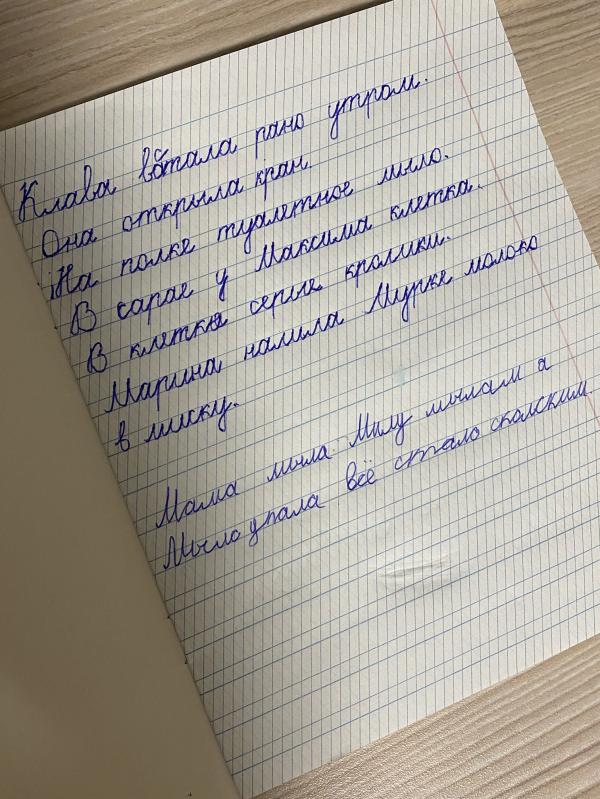 Клава встала рано утром.
Она открыла кран.
На полке туалетное мыло.
В сарае у Максима клетка.
В клетке серые кролики.
Марина налила Мурке молоко
в миску.
Мама мыла Милу мылам а
Мыло упала всё стало скалским